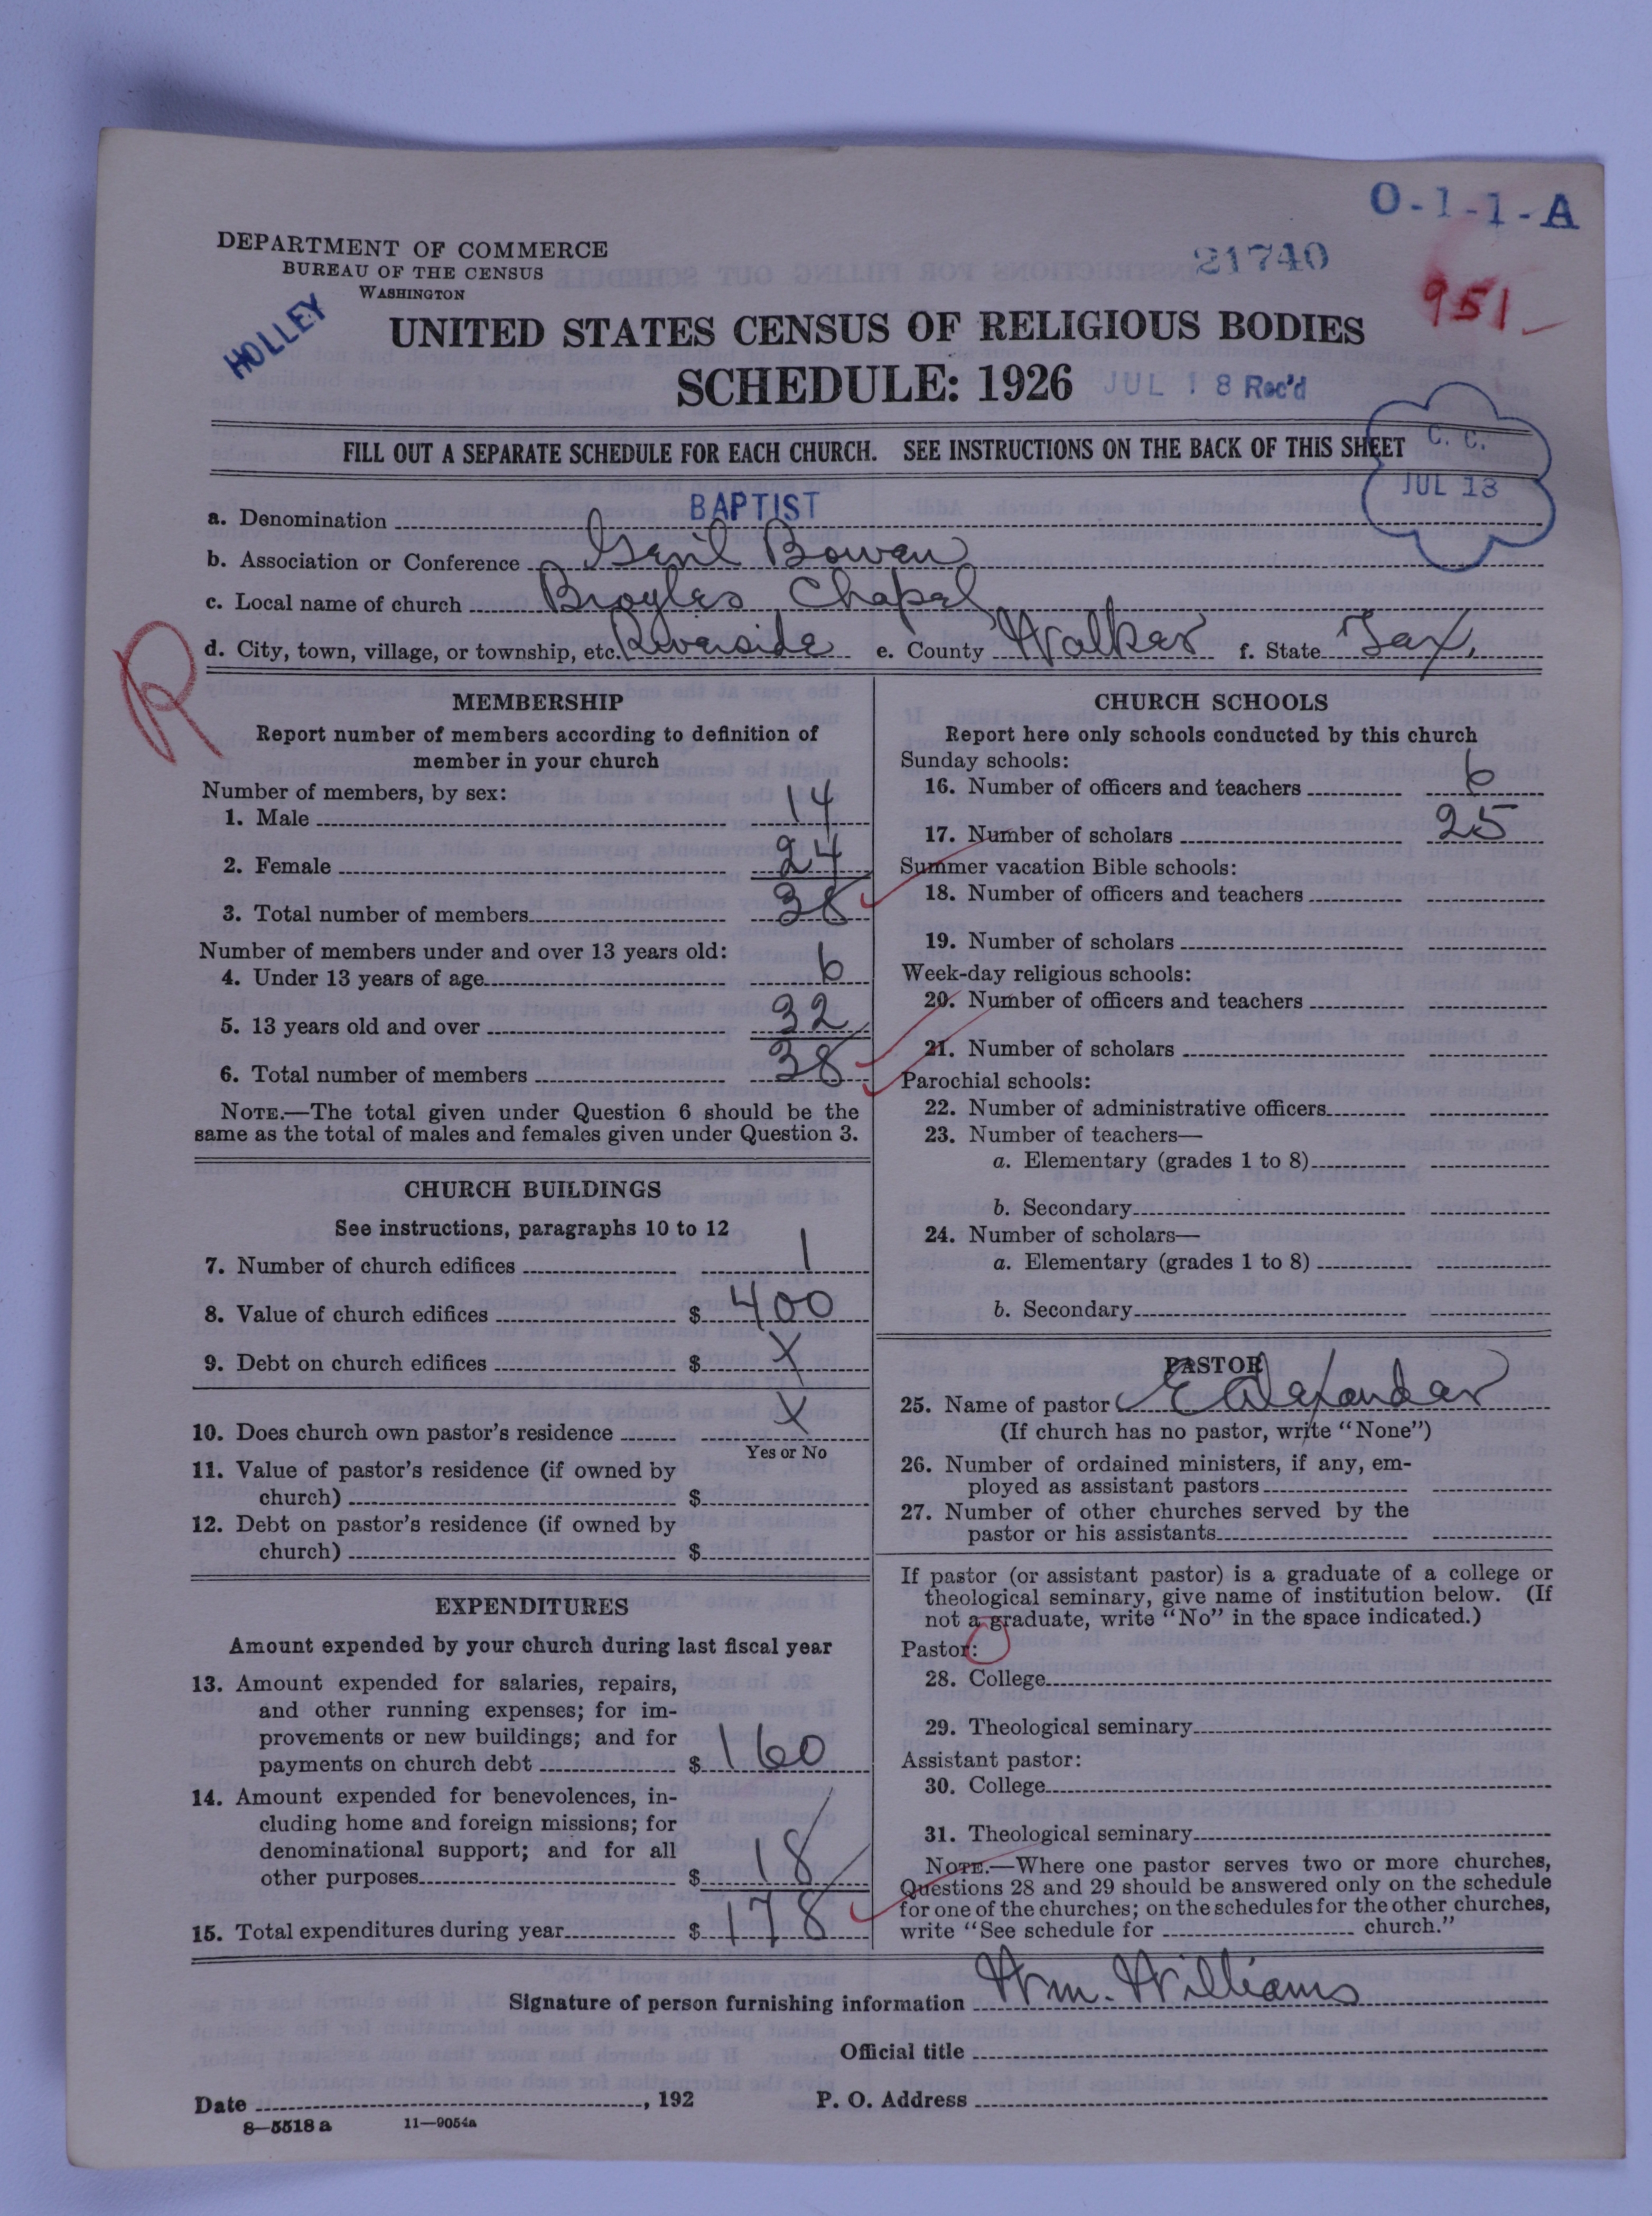 O-1-1-A
DEPARTMENT OF COMMERCE
BUREAU OF THE CENSUS
WASHINGTON
21740
951
HOLLEY
UNITED STATES CENSUS OF RELIGIOUS BODIES
SCHEDULE: 1926 JUL 18 Rec'd
FILL OUT A SEPARATE SCHEDULE FOR EACH CHURCH. SEE INSTRUCTIONS ON THE BACK OF THIS SHEET
C. C.
JUL 18
a. Denomination BAPTIST
b. Association or Conference Genil Bowen
c. Local name of church Broyles Chapel
d. City, town, village, or township, etc. Riverside e. County Walker f. State Tex.
R
MEMBERSHIP
Report number of members according to definition of
member in your church
Number of members, by sex:
1. Male 14
2. Female 24
3. Total number of members 38
Number of members under and over 13 years old:
4. Under 13 years of age 6
5. 13 years old and over 32
6. Total number of members 38
NOTE.—The total given under Question 6 should be the
same as the total of males and females given under Question 3.
CHURCH BUILDINGS
See instructions, paragraphs 10 to 12
7. Number of church edifices 1
8. Value of church edifices $ 400
9. Debt on church edifices $ X
10. Does church own pastor's residence X
Yes or No
11. Value of pastor's residence (if owned by
church) $
12. Debt on pastor's residence (if owned by
church) $
EXPENDITURES
Amount expended by your church during last fiscal year
13. Amount expended for salaries, repairs,
and other running expenses; for im-
provements or new buildings; and for
payments on church debt $ 160
14. Amount expended for benevolences, in-
cluding home and foreign missions; for
denominational support; and for all
other purposes $ 18
15. Total expenditures during year $ 178
CHURCH SCHOOLS
Report here only schools conducted by this church
Sunday schools:
16. Number of officers and teachers 6
17. Number of scholars 25
Summer vacation Bible schools:
18. Number of officers and teachers
19. Number of scholars
Week-day religious schools:
20. Number of officers and teachers
21. Number of scholars
Parochial schools:
22. Number of administrative officers
23. Number of teachers—
a. Elementary (grades 1 to 8)
b. Secondary
24. Number of scholars—
a. Elementary (grades 1 to 8)
b. Secondary
PASTOR
25. Name of pastor E Alexander
(If church has no pastor, write "None")
26. Number of ordained ministers, if any, em-
ployed as assistant pastors
27. Number of other churches served by the
pastor or his assistants
If pastor (or assistant pastor) is a graduate of a college or
theological seminary, give name of institution below. (If
not a graduate, write "No" in the space indicated.)
Pastor:
28. College
29. Theological seminary
Assistant pastor:
30. College
31. Theological seminary
NOTE.—Where one pastor serves two or more churches,
Questions 28 and 29 should be answered only on the schedule
for one of the churches; on the schedules for the other churches,
write "See schedule for church."
Signature of person furnishing information Wm. Williams
Official title
Date , 192 P. O. Address
8—5518 a 11—9054a